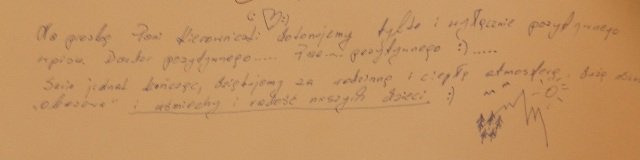 Na prośbę Pani Kierowniczki dokonujemy tylko i wyłącznie pozytywnego
wpisu. Doktor pozytywnego..... Pan... pozytywnego :).....
jednak kończąc, dziękujemy za rodzinną i ciepłą atmosferę, dużą
i uśmiechy i radość naszych dzieci. :)